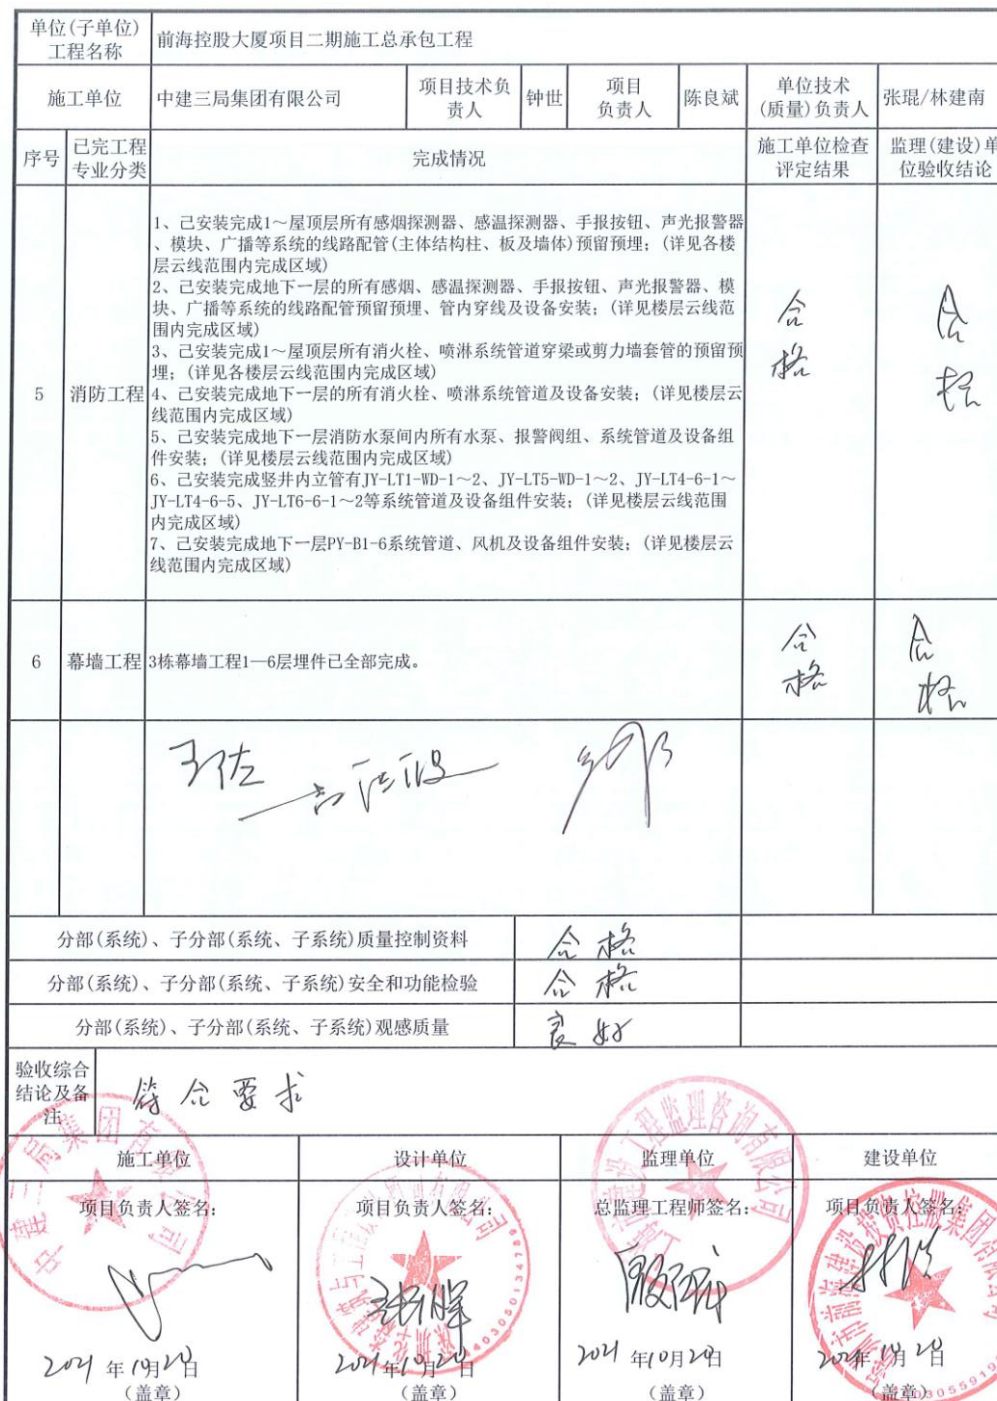 单位(子单位)
工程名称
前海控股大厦项目二期施工总承包工程
施工单位
中建三局集团有限公司
项目技术负
责人
钟世
项目
负责人
陈良斌
单位技术
(质量)负责人
张琨/林建南
序号
已完工程
专业分类
完成情况
施工单位检查
评定结果
监理(建设)单
位验收结论
5
消防工程
1、己安装完成1～屋顶层所有感烟探测器、感温探测器、手报按钮、声光报警器
、模块、广播等系统的线路配管(主体结构柱、板及墙体)预留预埋；(详见各楼
层云线范围内完成区域)
2、己安装完成地下一层的所有感烟、感温探测器、手报按钮、声光报警器、模
块、广播等系统的线路配管预留预埋、管内穿线及设备安装；(详见楼层云线范
围内完成区域)
3、己安装完成1～屋顶层所有消火栓、喷淋系统管道穿梁或剪力墙套管的预留预
埋；(详见各楼层云线范围内完成区域)
4、己安装完成地下一层的所有消火栓、喷淋系统管道及设备安装；(详见楼层云
线范围内完成区域)
5、己安装完成地下一层消防水泵间内所有水泵、报警阀组、系统管道及设备组
件安装；(详见楼层云线范围内完成区域)
6、己安装完成竖井内立管有JY-LT1-WD-1～2、JY-LT5-WD-1～2、JY-LT4-6-1～
JY-LT4-6-5、JY-LT6-6-1～2等系统管道及设备组件安装；(详见楼层云线范围
内完成区域)
7、己安装完成地下一层PY-B1-6系统管道、风机及设备组件安装；(详见楼层云
线范围内完成区域)
合
格
合
格
6
幕墙工程
3栋幕墙工程1—6层埋件已全部完成。
合
格
合
格
分部(系统)、子分部(系统、子系统)质量控制资料
合格
分部(系统)、子分部(系统、子系统)安全和功能检验
合格
分部(系统)、子分部(系统、子系统)观感质量
良好
验收综合
结论及备
注
符合要求
施工单位
设计单位
监理单位
建设单位
项目负责人签名：
项目负责人签名：
总监理工程师签名：
项目负责人签名：
2021年10月20日
2021年10月20日
2021年10月20日
2021年10月20日
(盖章)
(盖章)
(盖章)
(盖章)